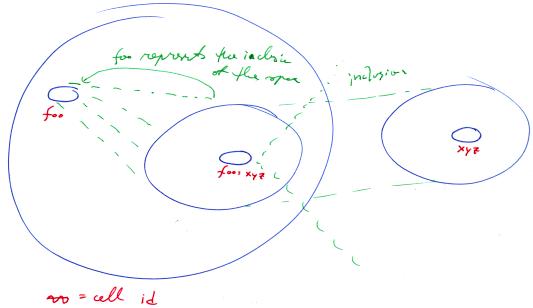 foo represents the inclusion
of the space
inclusion
foo
foo: xyz
xyz
= cell id